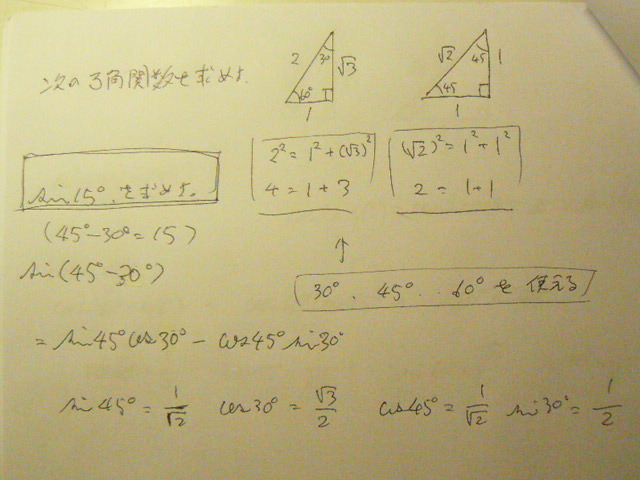 次の3角関数を求めよ.
2 30 √3 60° 1
√2 45 1 45 1
2² = 1² + (√3)²
4 = 1 + 3
(√2)² = 1² + 1²
2 = 1 + 1
sin15°. を求めよ.
(45°-30°=15)
↑
sin(45°-30°)
30°. 45°. 60°を使える
= sin45°cos30° - cos45°sin30°
sin45° = 1/√2 cos30° = √3/2 cos45° = 1/√2 sin30° = 1/2